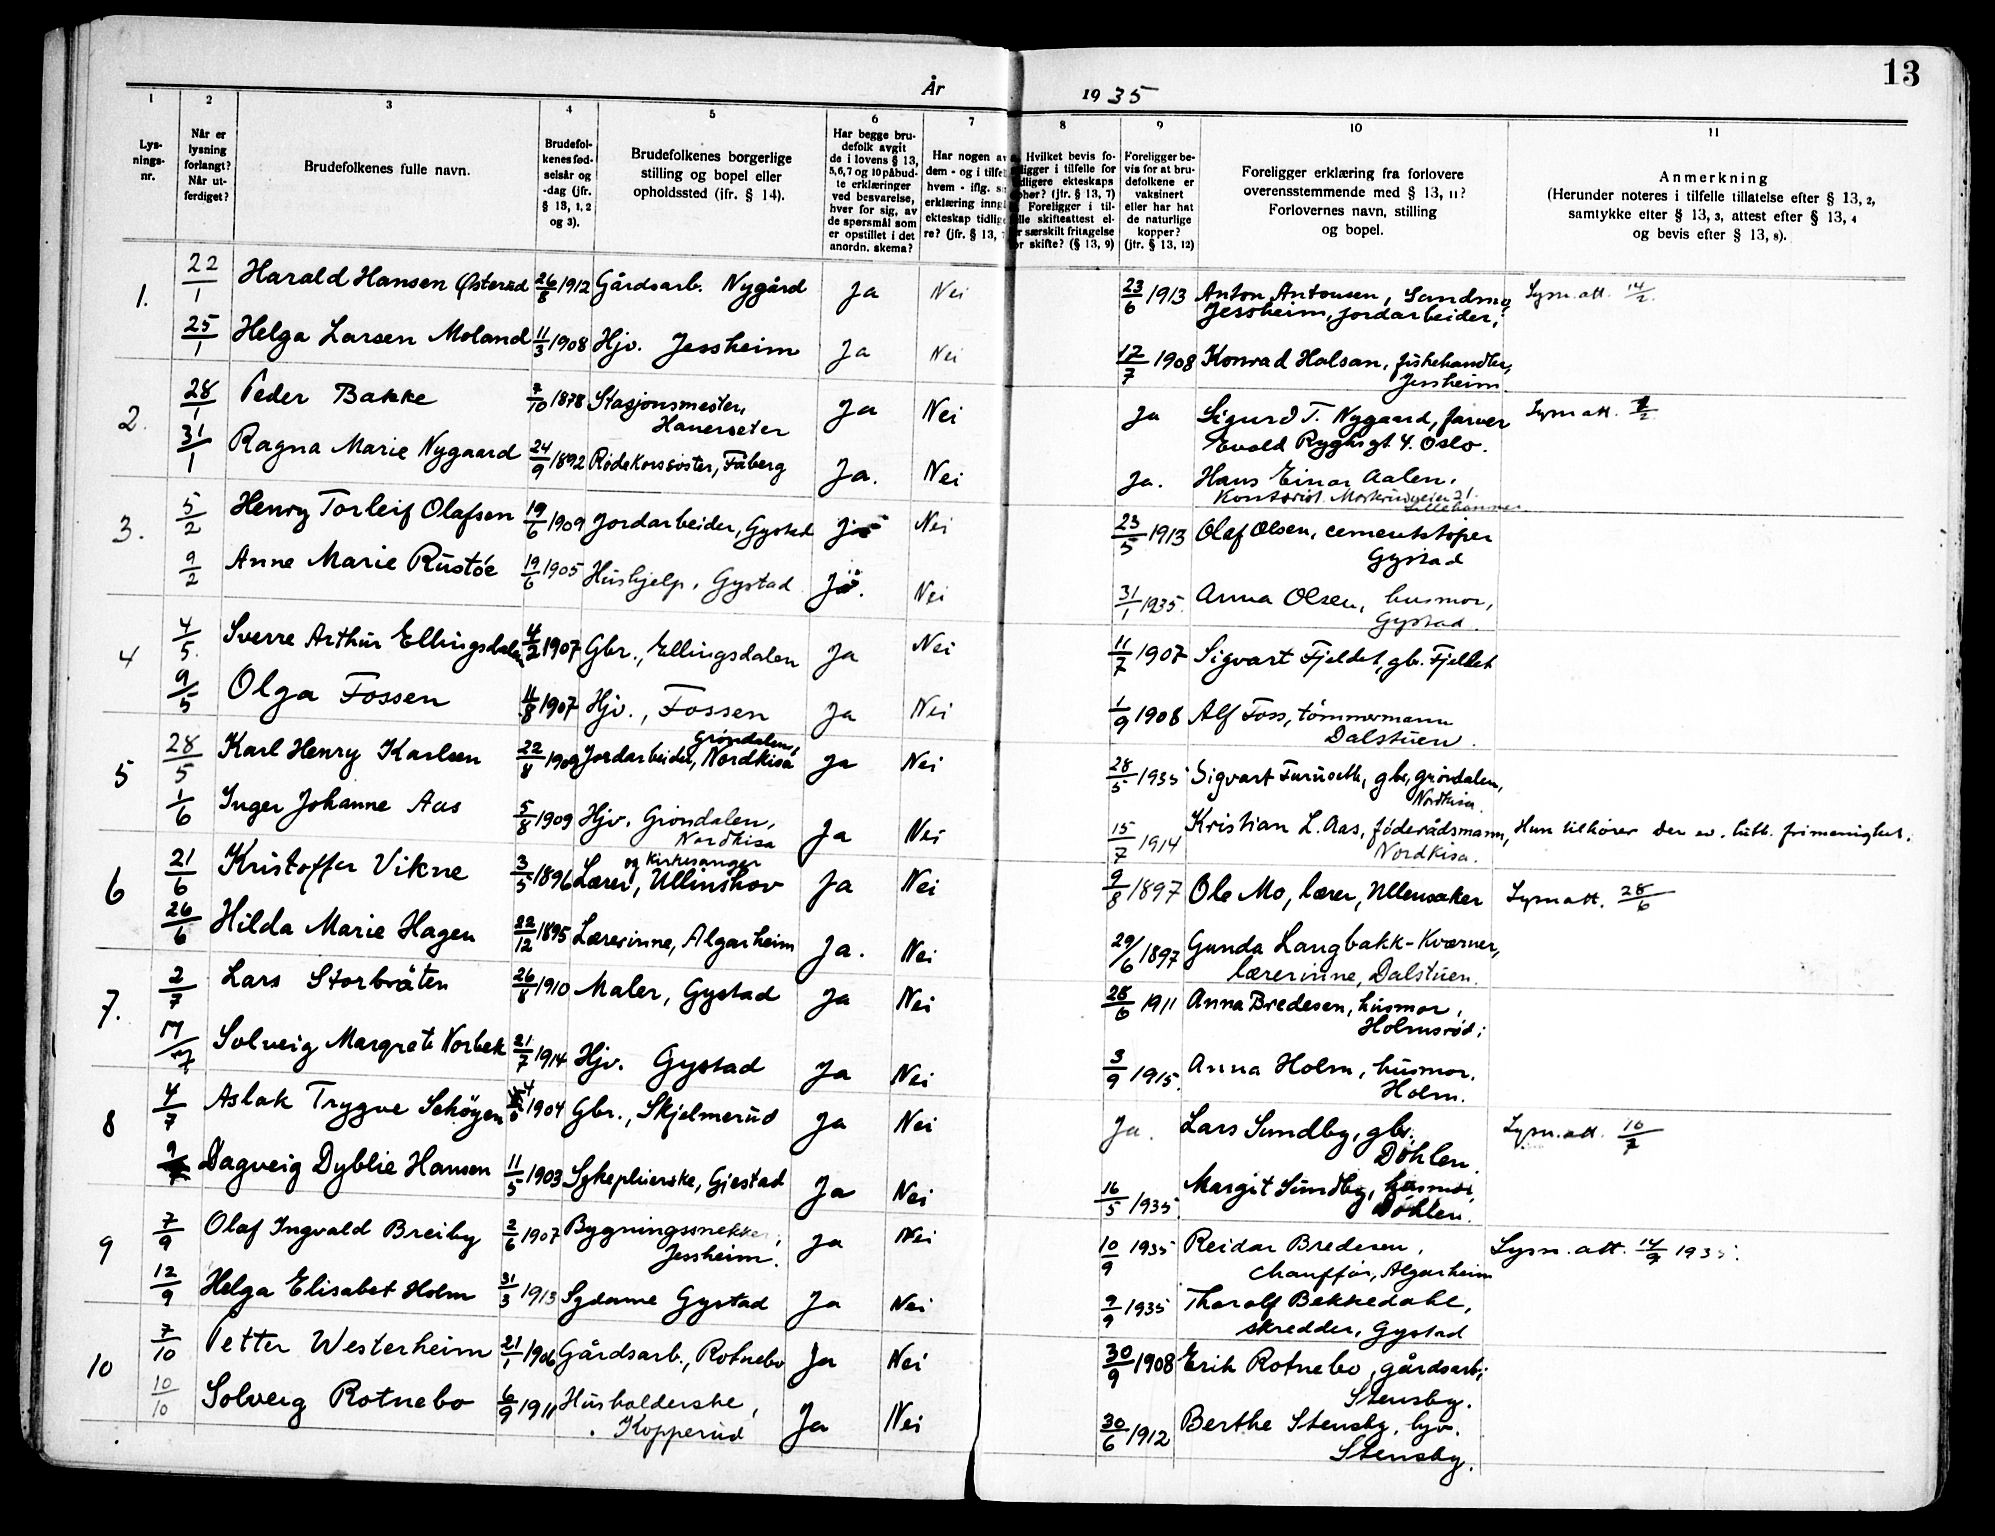 13
År 1935
1 2 3 4 5 6 7 8 9 10 11
Lys-
nings-
nr.
Når er
lysning
forlangt?
Når ut-
ferdiget?
Brudefolkenes fulle navn.
Brudefol-
kenes fød-
selsår og
-dag (jfr.
§ 13, 1, 2
og 3).
Brudefolkenes borgerlige
stilling og bopel eller
opholdssted (jfr. § 14).
Har begge bru-
defolk avgit
de i lovens § 13,
5, 6, 7 og 10 påbud-
te erklæringer
ved besvarelse,
hver for sig, av
de spørsmål som
er opstillet i det
anordn. skema?
Har nogen av
dem - og i tilfel
hvem - iflg. s
erklæring inng
ekteskap tidlig
re? (jfr. § 13, 7
Hvilket bevis fo-
ligger i tilfelle for
dligere ekteskaps
ophør? (jfr. § 13, 7)
Foreligger i til-
felle skifteattest el-
er særskilt fritagelse
for skifte? (§ 13, 9)
Foreligger be-
vis for at bru-
defolkene er
vaksinert
eller har hat
de naturlige
kopper?
(jfr. § 13, 12)
Foreligger erklæring fra forlovere
overensstemmende med § 13, 11?
Forlovernes navn, stilling
og bopel.
Anmerkning
(Herunder noteres i tilfelle tillatelse efter § 13, 2,
samtykke efter § 13, 3, attest efter § 13, 4
og bevis efter § 13, 8).
1. 22/1 Harald Hansen Østerud 26/8 1912 Gårdsarb. Nygård Ja Nei 23/6 1913 Anton Antonsen, Sandmo, Lysn. att. 14/2.
Jessheim, jordarbeider,
25/1 Helga Larsen Moland 11/3 1908 Hjv. Jessheim Ja Nei 17/7 1908 Konrad Holsan, fiskehandler,
Jessheim
2. 28/1 Peder Bakke 7/10 1878 Stasjonsmester, Ja Nei Ja Sigurd T. Nygaard, farver Lysn att.
Hauerseter
Evald Ryghsgt 4. Oslo.
31/1 Ragna Marie Nygaard 24/9 1892 Rødekorssøster, Fåberg Ja. Nei Ja. Hans Einar Aalen,
Kontorist
Lillehammer
3. 5/2 Henry Torleif Olafsen 19/6 1909 Jordarbeider, Gystad Ja Nei 23/5 1913 Olaf Olsen, cementstøper
Gystad
9/2 Anne Marie Rustøe 19/6 1905 Hushjelp, Gystad Ja. Nei 31/1 1935. Anna Olsen, husmor,
Gystad.
4 4/5. Sverre Arthur Ellingsdalen 4/2 1907 Gbr., Ellingsdalen Ja Nei 11/7 1907 Sigvart Fjeldet, gbr. Fjellet
9/5 Olga Fossen 11/8 1907 Hjv., Fossen Ja Nei 1/9 1908 Alf Foss, tømmermann
Dalstuen.
5 28/5 Karl Henry Karlsen 22/8 1909 Jordarbeider, Grøndalen, Nordkisa Ja Nei 28/5 1935 Sigvart Furuseth, gbr, grøndalen,
Nordkisa.
1/6 Inger Johanne Aas 5/8 1909 Hjv. Grøndalen, Ja Nei 15/7 1914 Kristian L. Aas, føderådsmann, Hun tilhører den ev. luth. frimenighet.
Nordkisa
Nordkisa.
6 21/6 Kristoffer Vikne 3/5 1896 Lærer og Kirkesanger, Ullinshov Ja Nei 9/8 1897 Ole Mo, lærer, Ullensaker Lysn att. 28/6
26/6 Hilda Marie Hagen 22/12 1895 Lærerinne, Algarheim Ja. Nei 29/6 1897 Gunda Langbakk-Kværner,
lærerinne, Dalstuen.
7. 2/7 Lars Storbråten 26/8 1910 Maler, Gystad Ja Nei 28/6 1911 Anna Bredesen, husmor,
Holmsrød;
Solveig Margrete Norbek 21/7 1914 Hjv. Gystad Ja Nei 3/9 1915. Anna Holm, husmor.
Holm.
8 4/7 Aslak Trygve Schøyen 1904 Gbr., Skjelmerud Ja Nei Ja. Lars Sundby, gbr. Lysn. att. 10/7
Døhlen.
Dagveig Dyblie Hansen 11/5 1903 Sykepleierske, Gjestad Ja Nei 16/5 1935. Margit Sundby, husmor,
Døhlen.
9 7/9 Olaf Ingvald Breiby 2/6 1907 Bygningssnekker, Ja Nei 10/9 1935 Reidar Bredesen, Lysn. att. 14/9 1935.
Jessheim.
chauffør, Algarheim
12/9 Helga Elisabet Holm 31/3 1913 Sydame Gystad Ja Nei 9/9 1935 Tharalf Bekkedahl,
skredder, Gystad
10 7/10 Petter Westerheim 21/1 1906 Gårdsarb., Rotnebo Ja Nei 30/9 1908 Erik Rotnebo, gårdsarb;
Stensby.
10/10 Solveig Rotnebo 6/9 1911 Husholderske, Ja Nei 30/6 1912 Berthe Stensby, hjv.
Kopperud
Stensby.